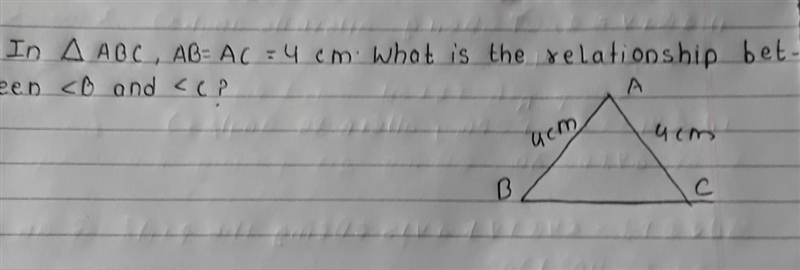 In △ ABC, AB = AC = 4 cm. What is the relationship bet-
een <B and <C?
A
4cm 4cm
B C